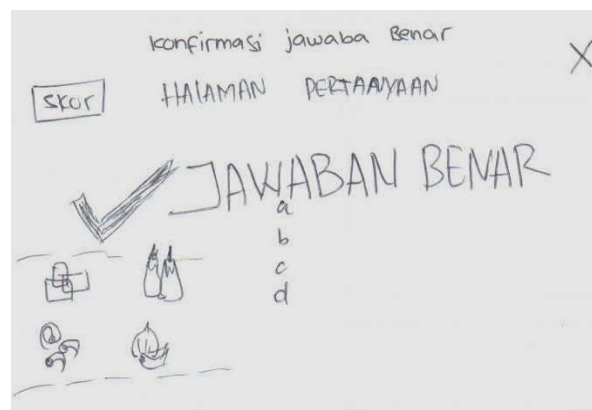 konfirmasi jawaba Benar
X
skor
HAlAMAN PERTAANYAAN
JAWABAN BENAR
a
b
c
d